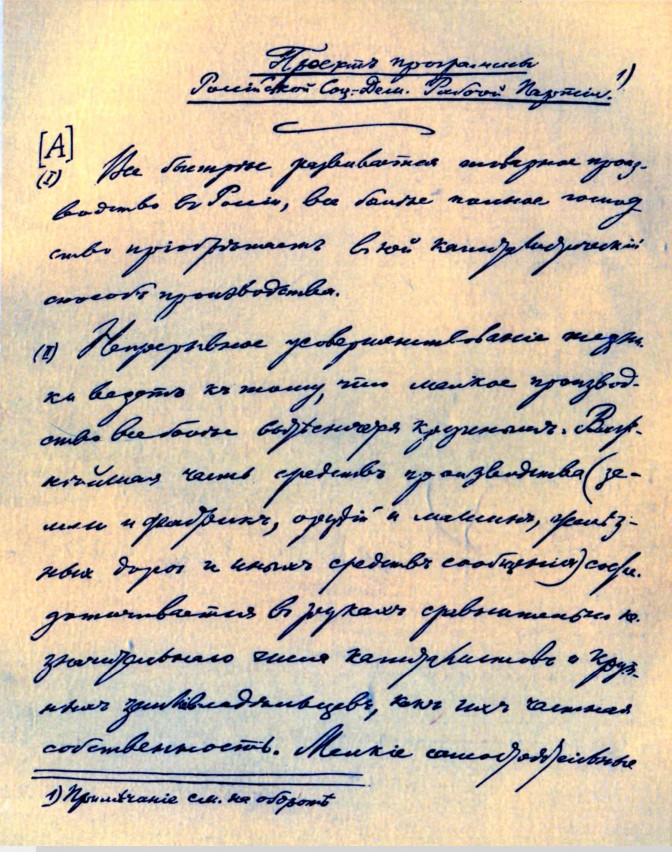 Проектъ программы
Россійской Соц.-Дем. Рабочей Партіи. 1)
[А]
(I) Все быстрѣе развивается товарное произ-
водство въ Россіи, все болѣе полное господ
ство пріобрѣтаетъ въ ней капиталистическій
способъ производства.
(II) Непрерывное усовершенствованіе техни-
ки ведетъ къ тому, что мелкое производ-
ство все болѣе вытѣсняется крупнымъ. Важ-
нѣйшая часть средствъ производства (зе-
мли и фабрикъ, орудій и машинъ, желѣз-
ныхъ дорогъ и иныхъ средствъ сообщенія) сосре-
доточивается въ рукахъ сравнительно не-
значительнаго числа капиталистовъ и круп-
ныхъ землевладѣльцевъ, какъ ихъ частная
собственность. Мелкіе самостоятельные
1) Примѣчаніе см. на оборотѣ